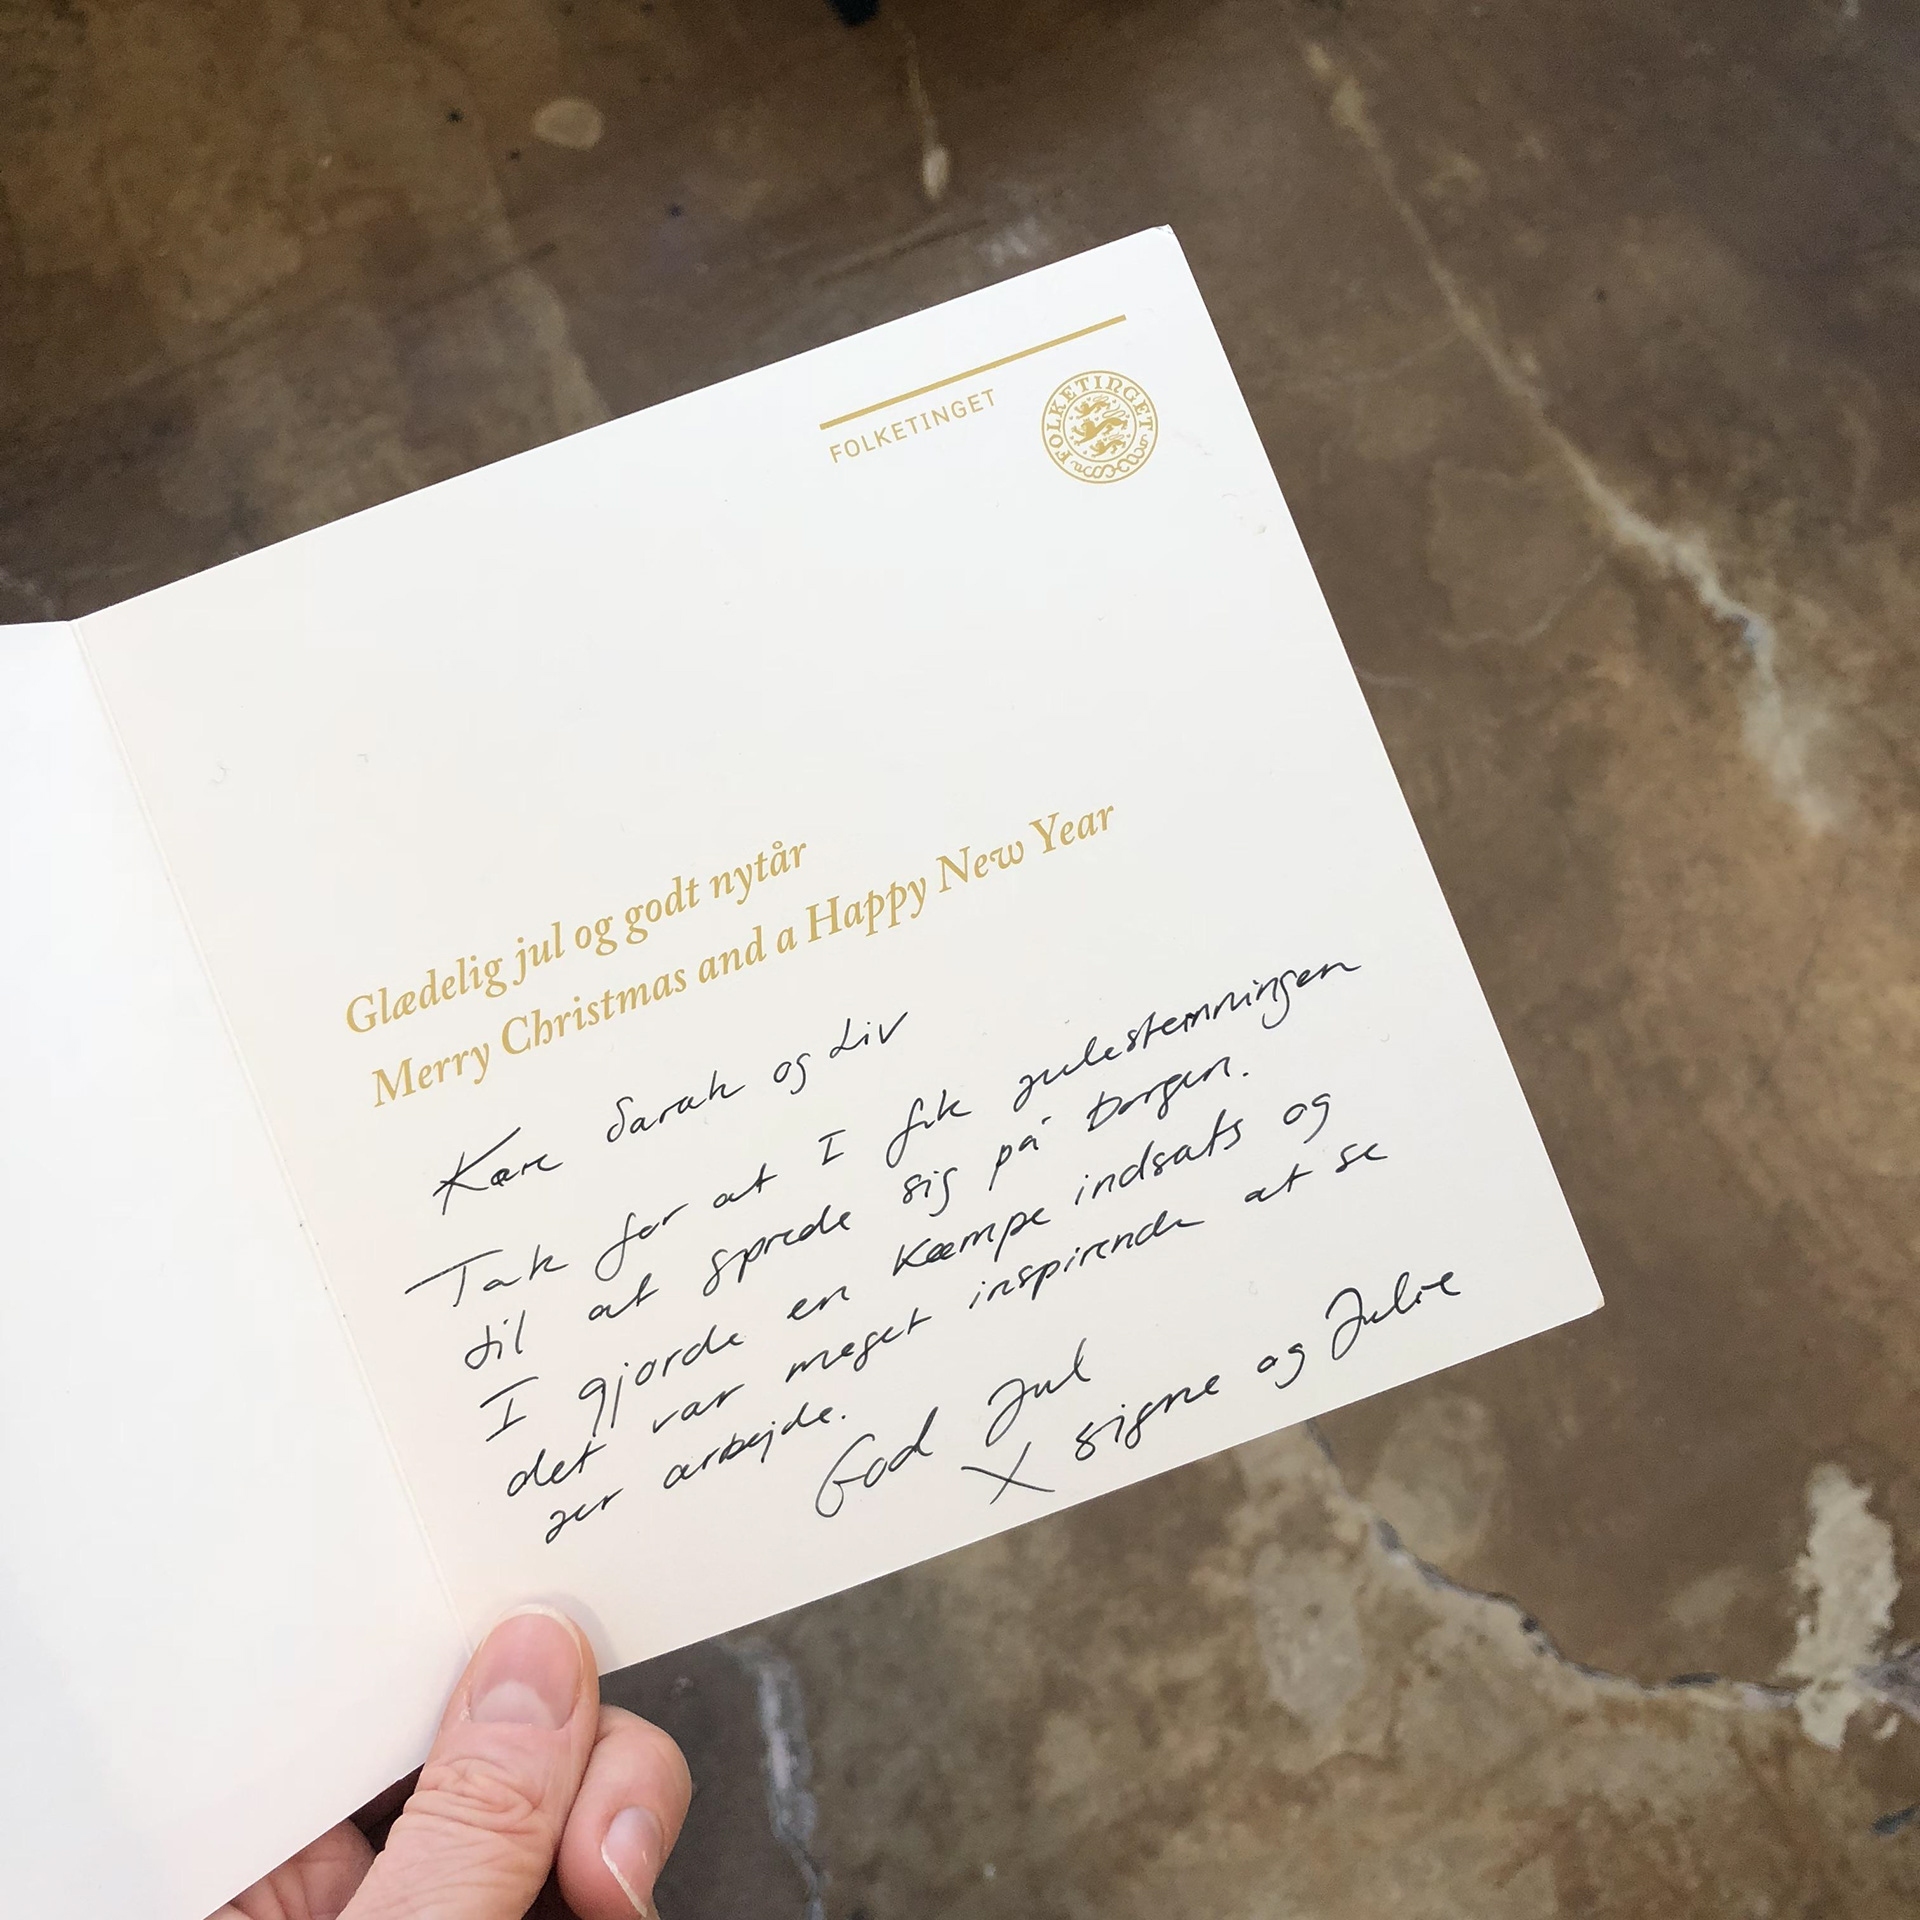 FOLKETINGET
FOLKETINGET
Glædelig jul og godt nytår
Merry Christmas and a Happy New Year
Kære Sarah og Liv
Tak for at I fik julestemningen
til at sprede sig på Borgen.
I gjorde en kæmpe indsats og
det var meget inspirende at se
jer arbejde.
God Jul
X signe og Julie